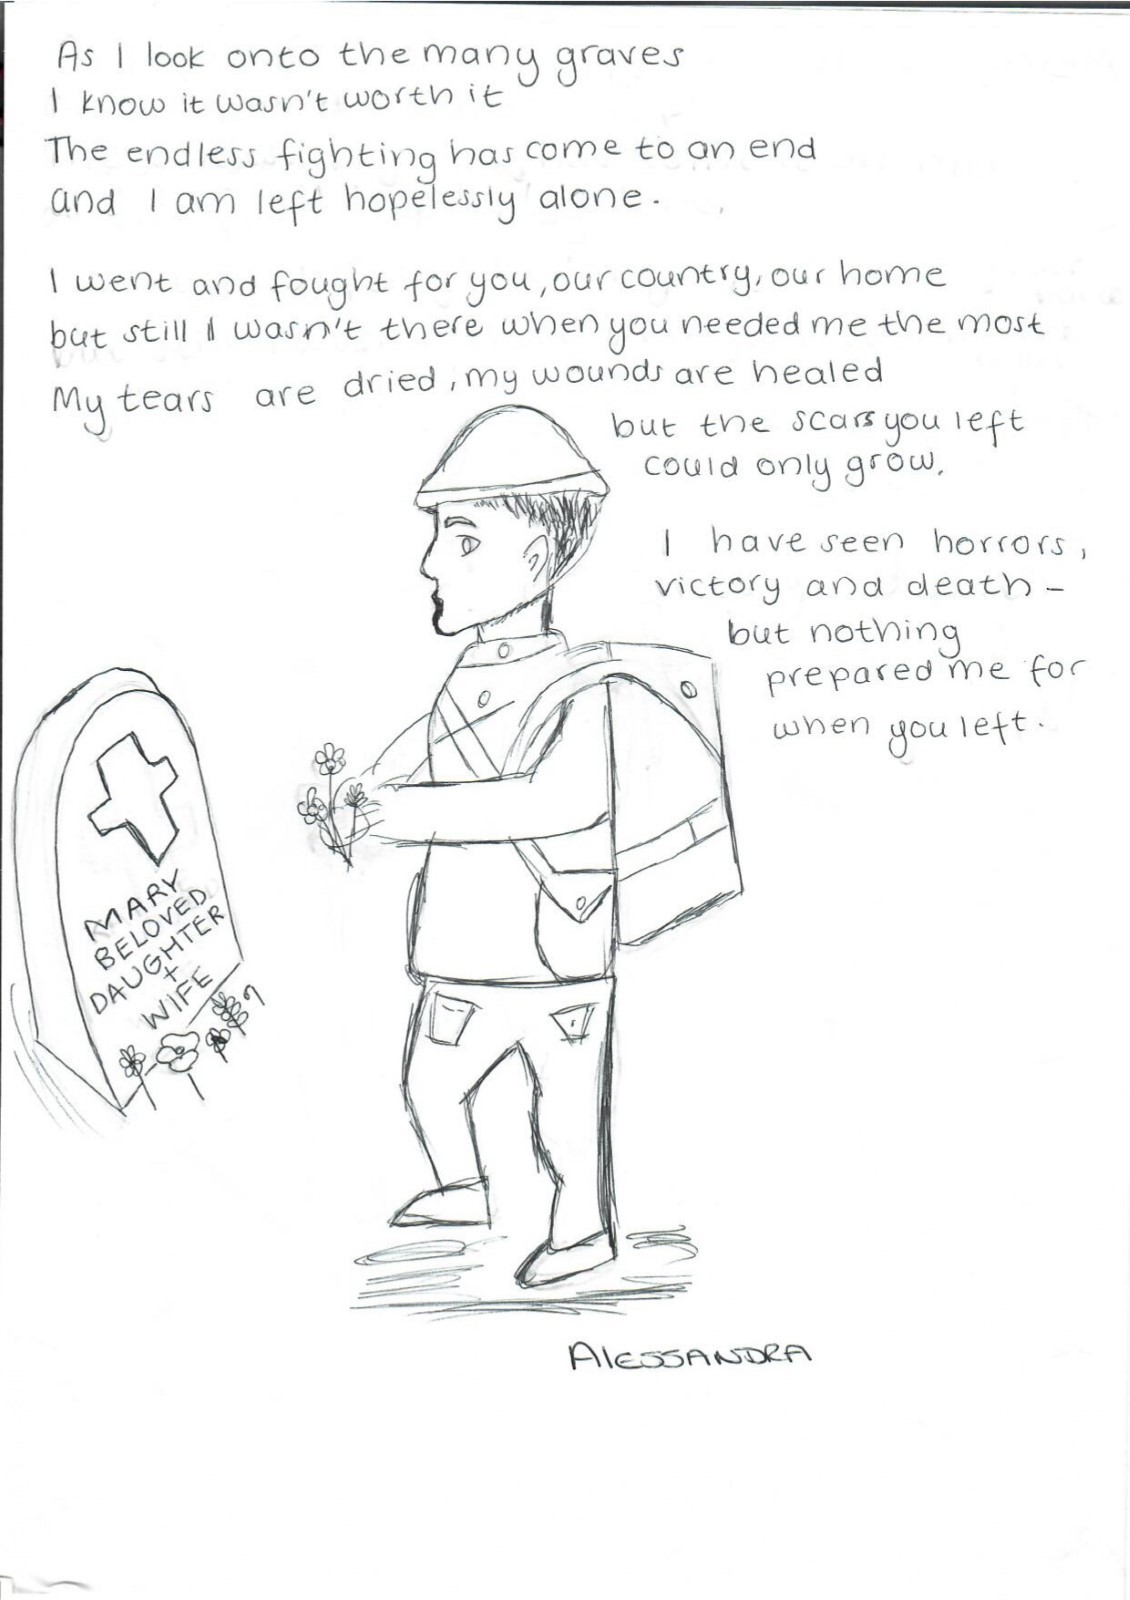 As I look onto the many graves
I know it wasn't worth it
The endless fighting has come to an end
and I am left hopelessly alone.
I went and fought for you, our country, our home
but still I wasn't there when you needed me the most
My tears are dried, my wounds are healed
but the scars you left
could only grow.
I have seen horrors,
victory and death -
but nothing
prepared me for
when you left.
MARY
BELOVED
DAUGHTER
+
WIFE
ALESSANDRA